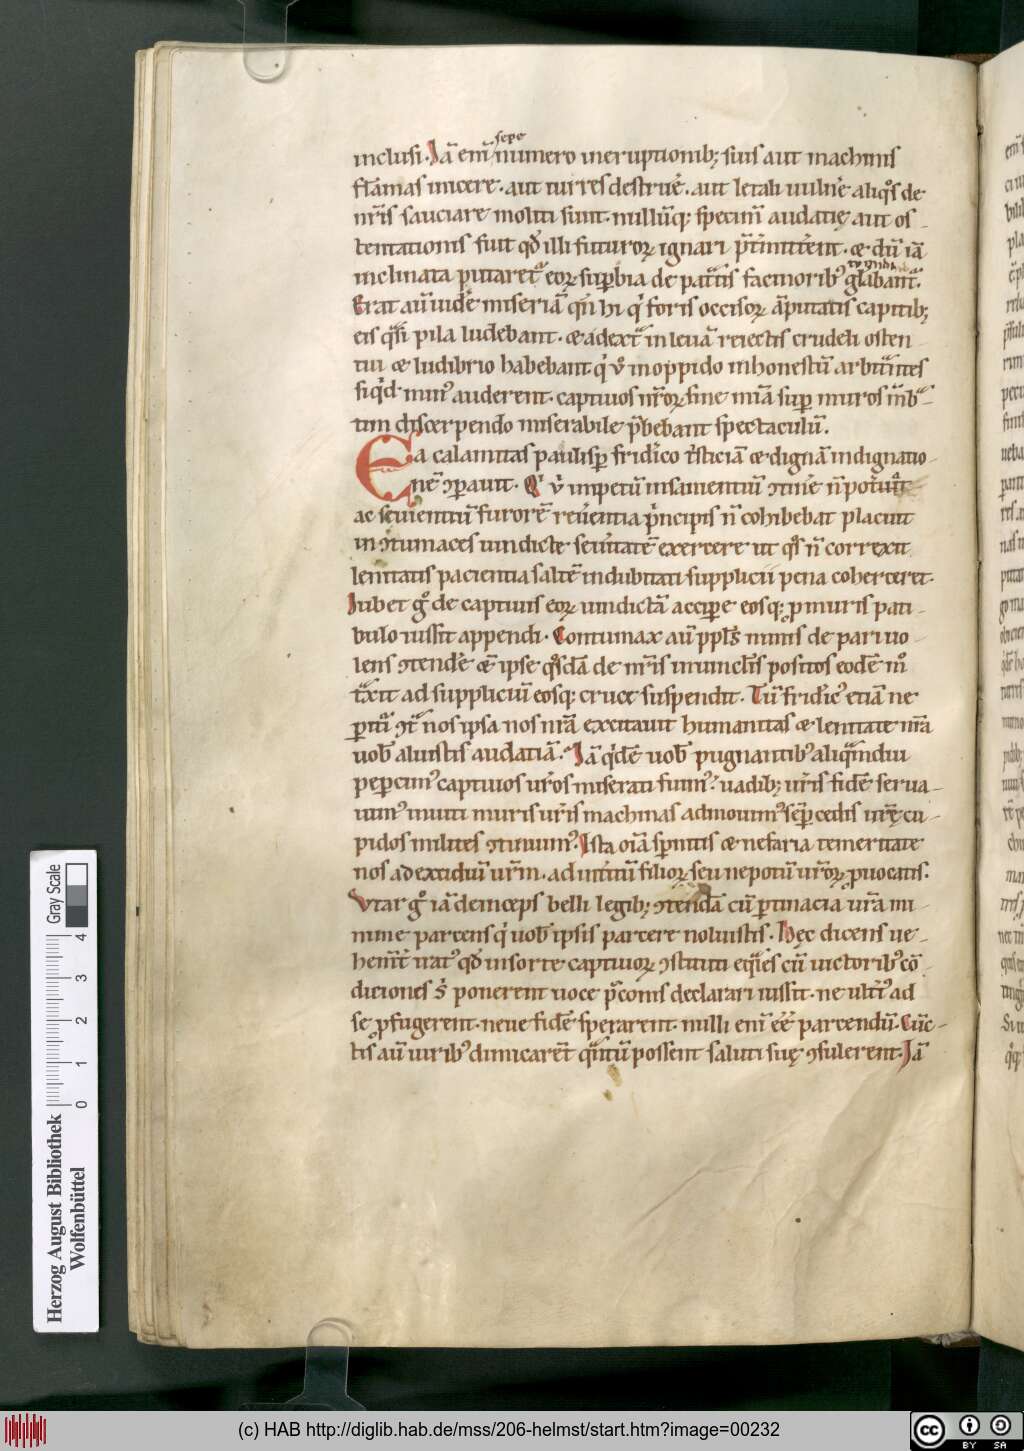 sepe
inclusi. Iā eni᷑ numero in eruptionib; suis aut machinis
flāmas inicere. aut turres destruẻ. aut letali uulnẻ aliqͦs de
nr̄is sauciare moliti sunt. nullūq; specim̄ audatię aut os-
tentationis fuit qd̄ illi futuroꝝ ignari p̄t̄mitterent. & dū iā
inclinata putaret᷑ eoꝝ suꝑbia de pat͛tis facinorib᷒
Erat aū uidẻ miseriā qn̄ hi qͥ foris occisoꝝ āputatis capitib;
eis qͣsi pila ludebant. & a dext͛ in leuā reiectis crudeli osten-
tui & ludibrio habebant qͥ ů in oppido inhonestū arbit͛ntes
siqͥd min᷒ auderent. captiuos nr̄oꝝ sine mīa suꝑ muros mēb͛-
tim discerpendo miserabile p̄bebant spectaculū.
Ea calamitas paulisꝑ fridͥco t̄sticiā & dignā indignatio-
nē ꝯꝑauit. Qͥ ů impetū insanientiū ꝯtinẻ n̄ pot͛ut
ac seuientiū furorē reůentia pͥncipis n̄ cohibebat placuit
in ꝯtumaces uindicte seůitatē exercere ut qͦs n̄ correxit
lenitatis pacientia saltē indubitati supplicii pena coherceret.
Iubet gͦ de captiuis eoꝝ uindictā acciꝑe eosq; ꝓ muris pati-
bulo iussit appendi. Contumax aū ppl̄s nimis de pari uo-
lens ꝯtendẻ & ipse qͦsdā de nr̄is in uincl̄is positos eodē mͦ
t͛xit ad suppliciū eosq; cruce suspendit. Tū fridͥc᷒ etiā ne
ꝑitͥ ꝯt͛ nos ipsa nos nr̄a excitauit humanitas & lenitate nr̄a
uob̄ aluistis audatiā. Iā qͥdē uob̄ pugnantib᷒ aliqͣmdiu
peꝑcim᷒ captiuos ur̄os miserati sum᷒. uadib; ur̄is fidē serua-
uim᷒ inuiti muris ur̄is machinas admouim᷒ sēꝑ cedis ur̄ę cu-
pidos milites ꝯtinuim᷒. Ista oīa sp̄nitis & nefaria temeritate
nos ad excidiū ur̄m. ad int͛itū filioꝝ seu nepotū ur̄oꝝ ꝓuocatis.
Vtar gͦ iā deinceps belli legib; ꝯtendā cū ꝑtinacia ur̄a mi-
nime parcens qͥ uob̄ ipsis parcere noluistis. Hęc dicens ue-
hem̄t̄ urat᷒ qd̄ in sorte captiuoꝝ ꝯstituti eqͣles cū uictorib᷒ cō-
diciones s̉ ponerent uoce p̄conis declarari iussit. ne ult͛i᷒ ad
se ꝓfugerent. neue fidē sperarent. nulli eni᷑ eē parcendū. Cūc-
tis aū uirib᷒ dimicarēt qͣntū possent saluti suę ꝯsulerent. Iā
Herzog August Bibliothek
Wolfenbüttel
Gray Scale
0 1 2 3 4
(c) HAB http://diglib.hab.de/mss/206-helmst/start.htm?image=00232
cc BY SA